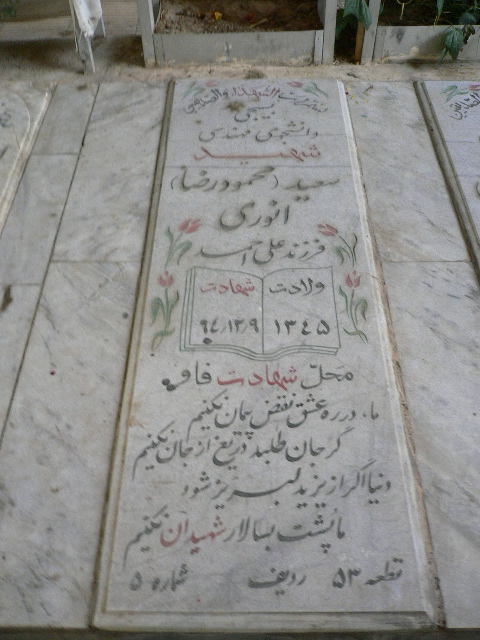 بسیجی
دانشجوی مهندسی
شهید
سعید (محمودرضا)
انوری
فرزند علی احمد
ولادت شهادت
۱۳۴۵ ۶۴/۱۲/۹
محل شهادت فاو
ما، در ره عشق نقض پیمان نکنیم
گر جان طلبد دریغ از جان نکنیم
دنیا اگر از یزید لبریز شود
ما پشت بسالار شهیدان نکنیم
قطعه ۵۳ ردیف شماره ۵